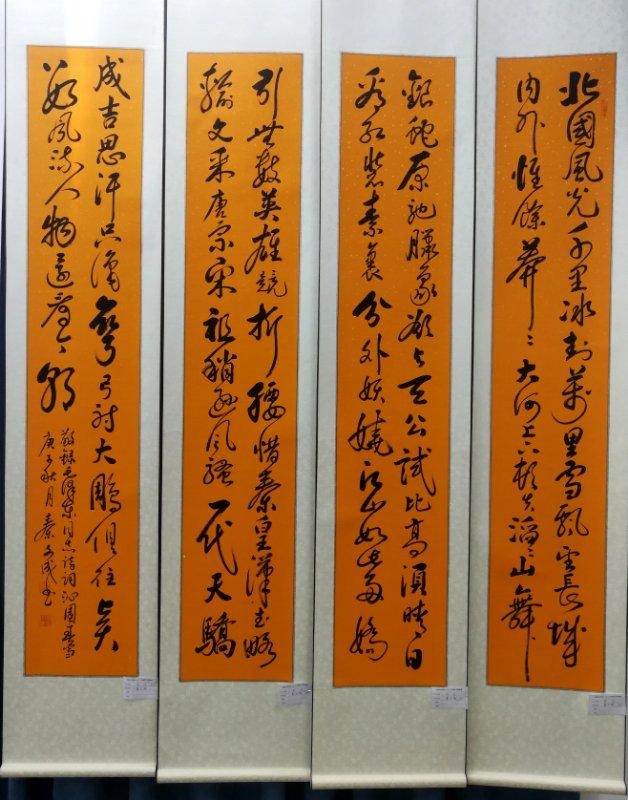 北國風光千里冰封萬里雪飄望長城
内外惟餘莽〻大河上下頓失滔〻山舞
銀蛇原馳臘象欲与天公試比高須晴日
看紅裝素裹分外妖嬈江山如此多嬌
引無數英雄競折腰惜秦皇漢武略
輸文采唐宗宋祖稍遜風騷一代天驕
成吉思汗只識彎弓射大雕俱往矣
數風流人物還看今朝
敬錄毛澤東同志詩詞沁園春雪
庚子秋月秦文成书